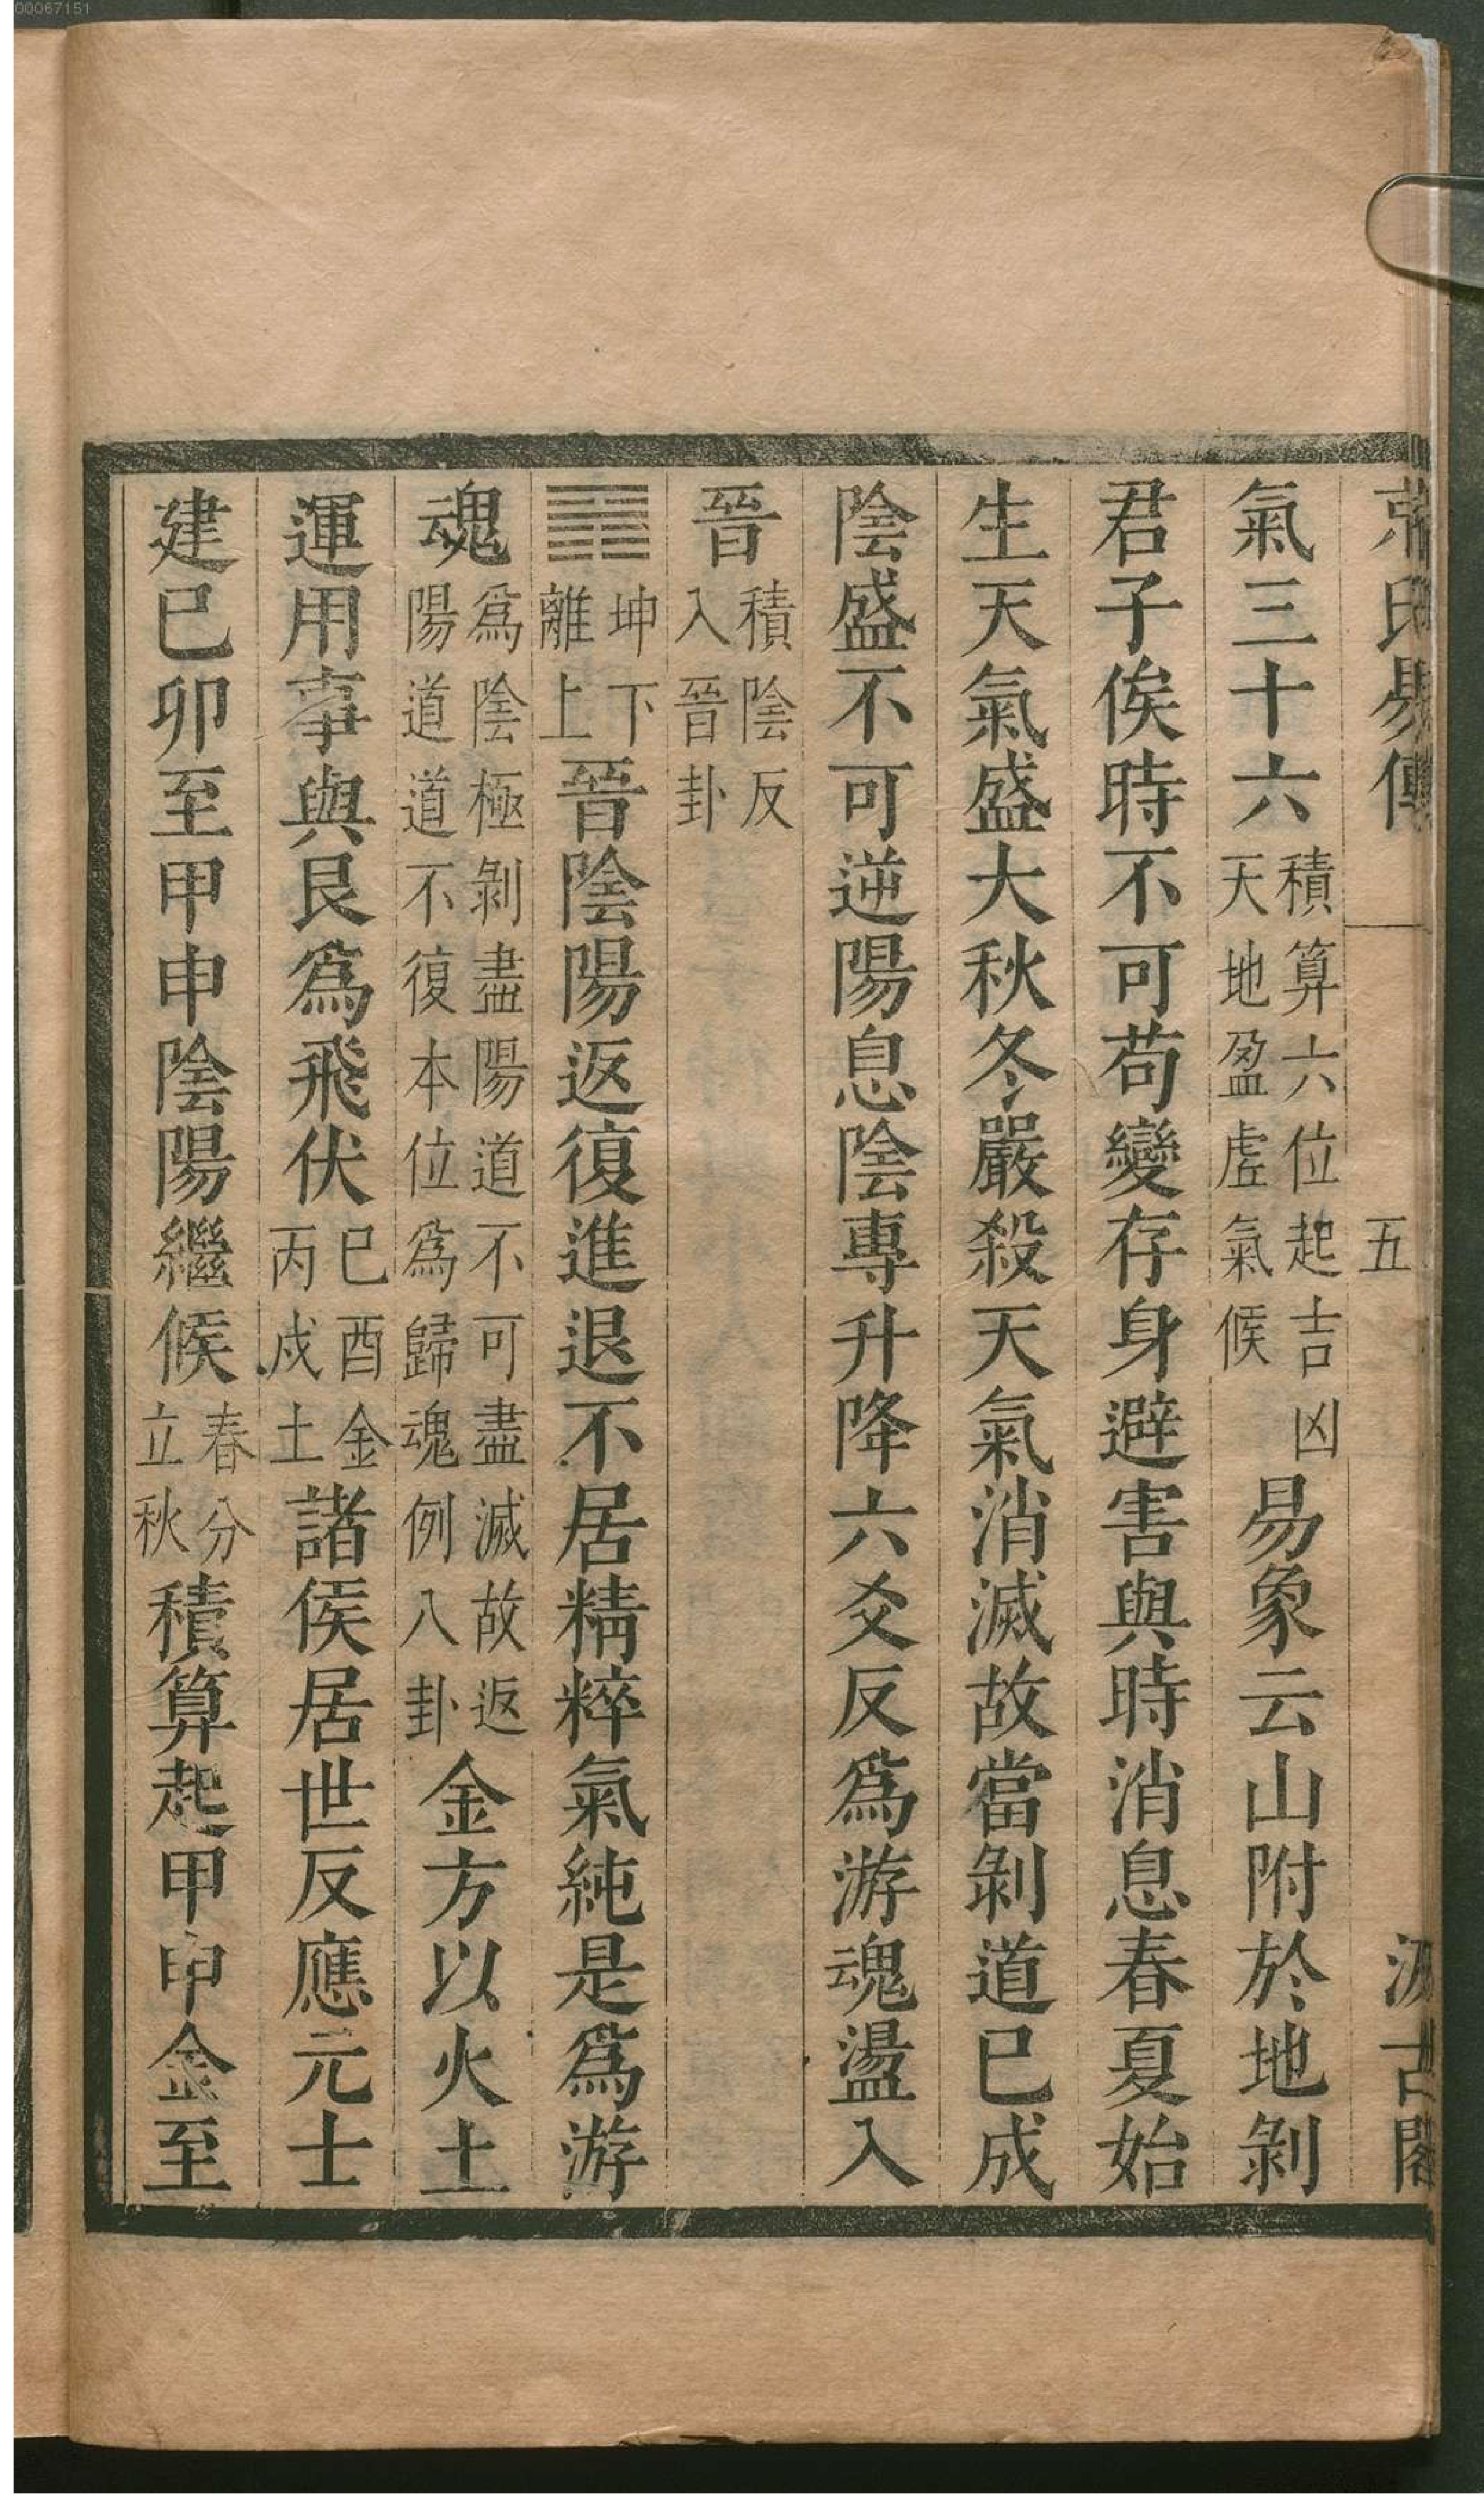 00067151
京氏易傳 五 汲古閣
氣三十六積算六位起吉凶天地盈虛氣候易象云山附於地剝
君子俟時不可苟變存身避害與時消息春夏始
生天氣盛大秋冬嚴殺天氣消滅故當剝道已成
陰盛不可逆陽息陰專升降六爻反爲游魂盪入
晉積陰反入晉卦
䷢坤下離上晉陰陽返復進退不居精粹氣純是爲游
魂爲陰極剝盡陽道不可盡滅故返陽道道不復本位爲歸魂例八卦金方以火土
運用事與艮爲飛伏己酉金丙戍土諸侯居世反應元士
建己卯至甲申陰陽繼候春分立秋積算起甲申金至